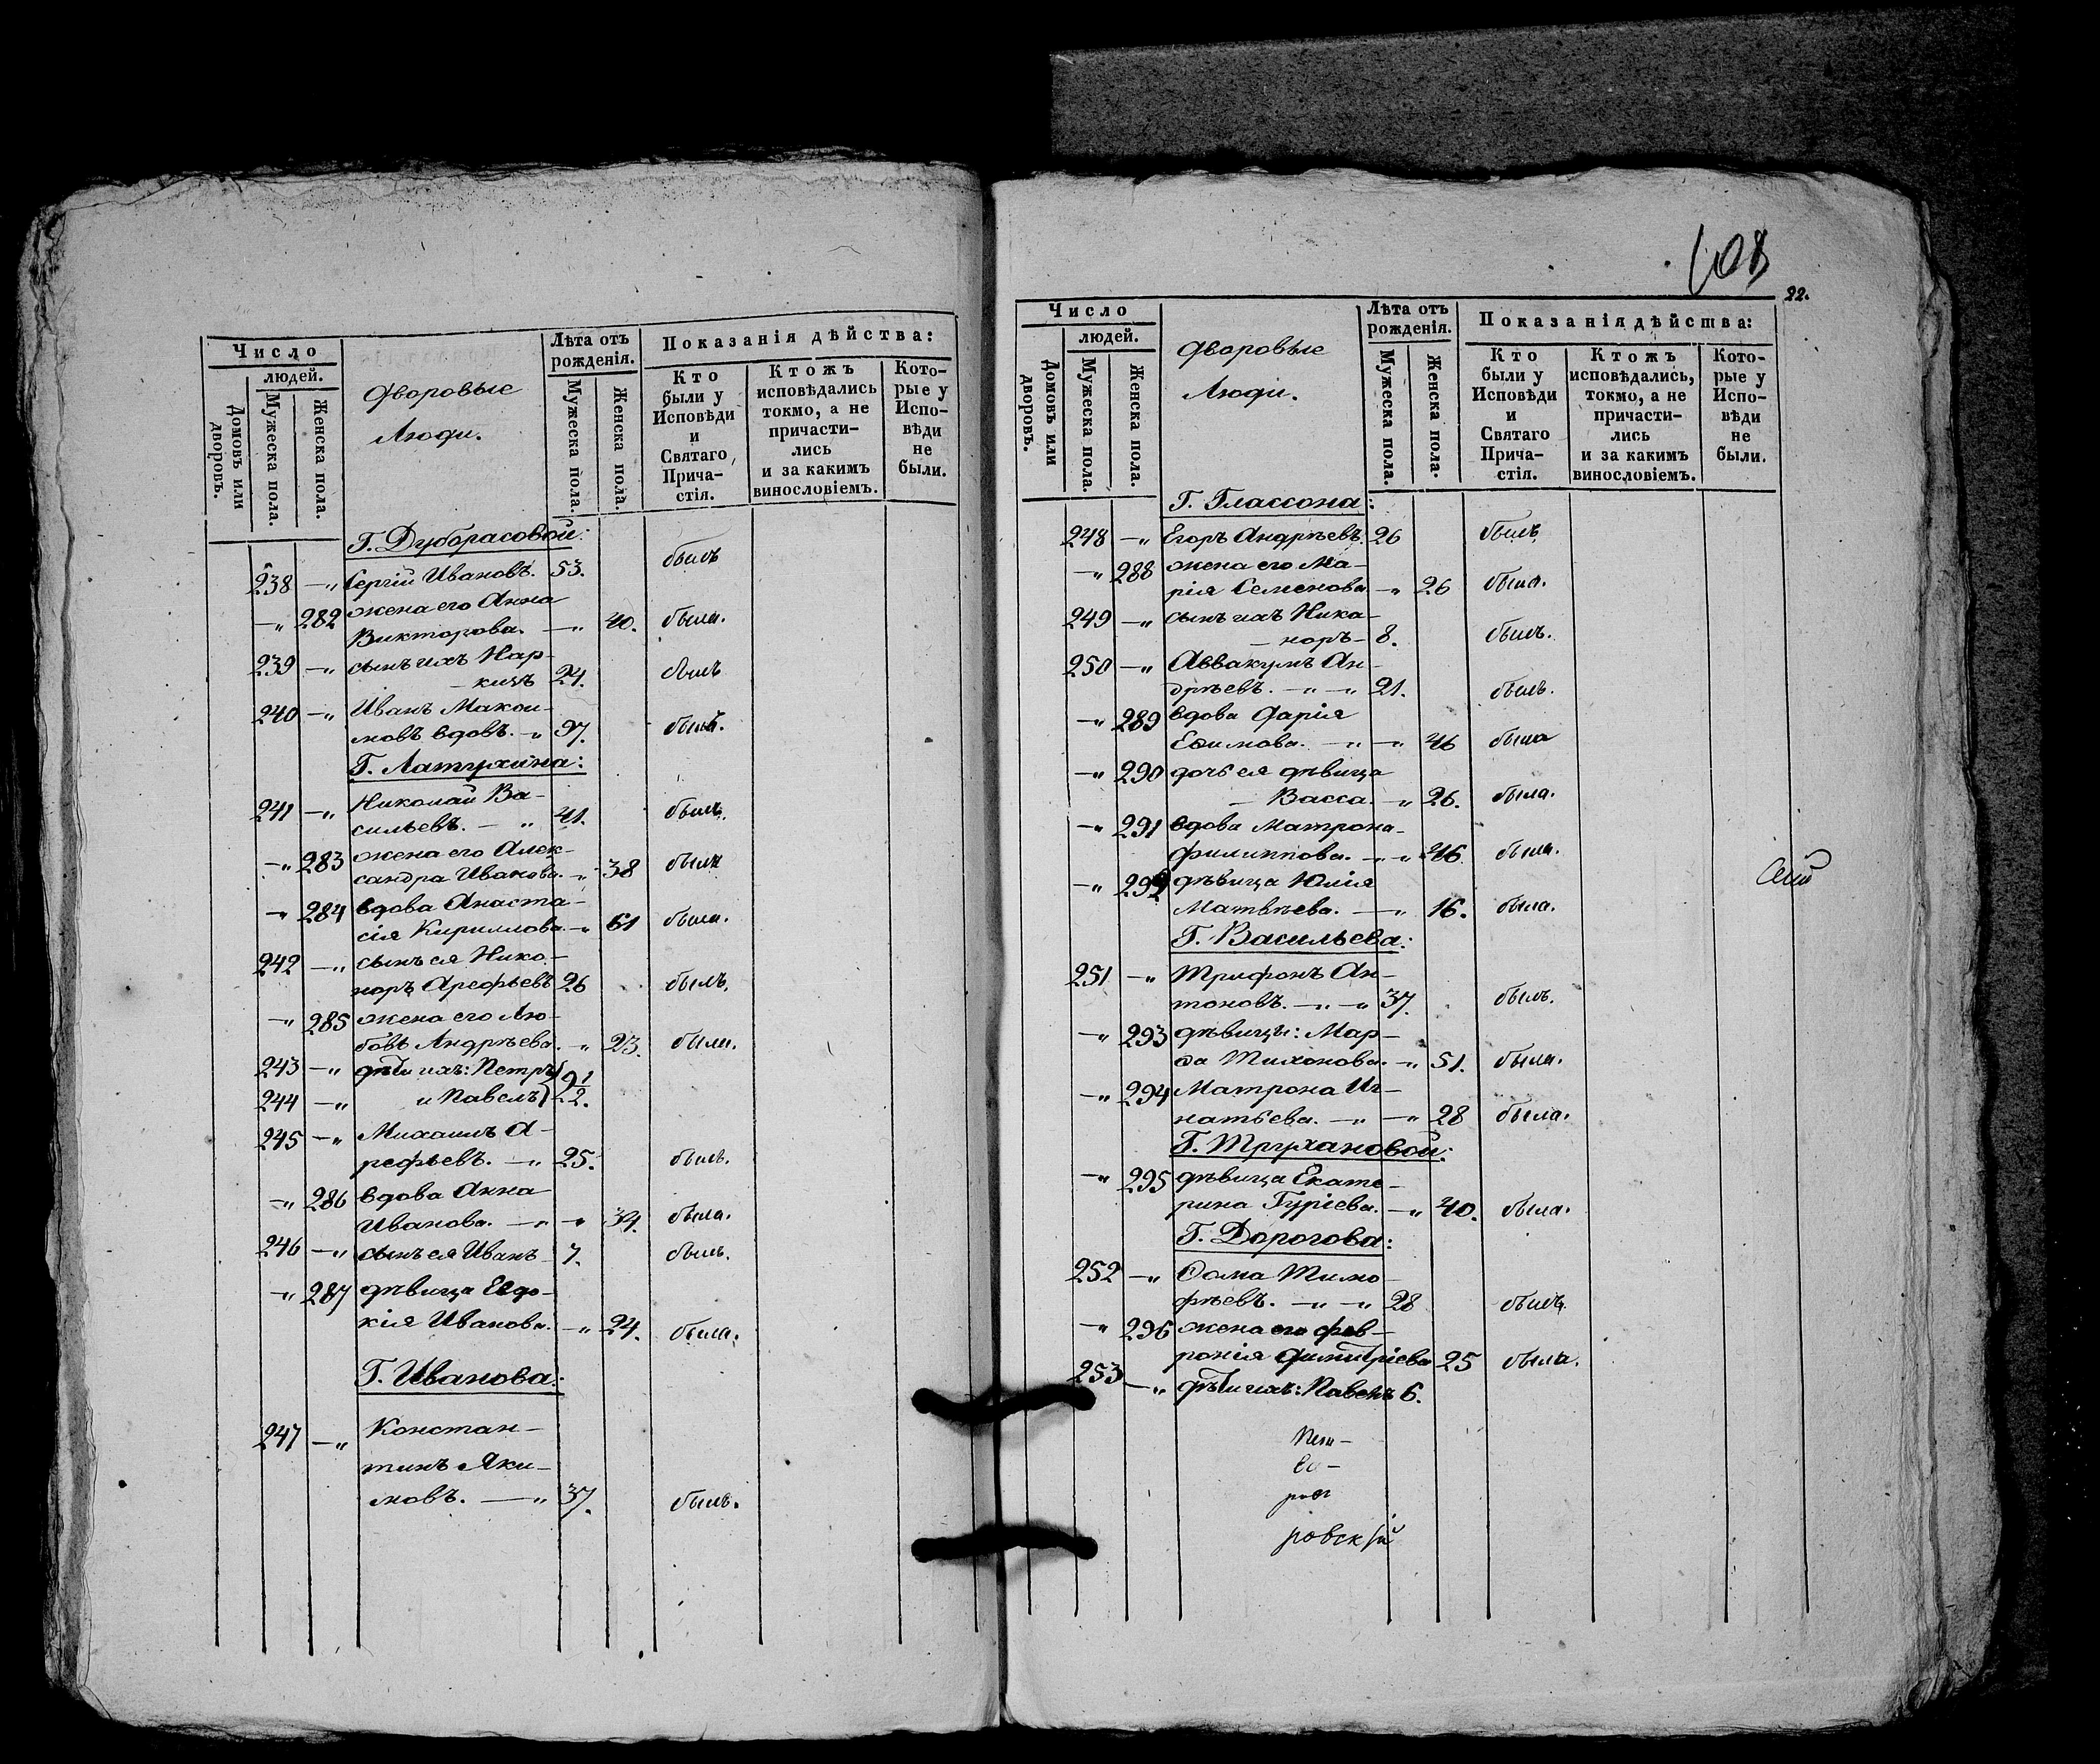 Число
людей.
Домовъ или дворовъ.
Мужеска пола.
Женска пола.
Дворовые
Люди.
Лѣта отъ рожденія.
Мужеска пола.
Женска пола.
Показанія дѣйства:
Кто были у Исповѣди и Святаго Прича-стія.
Ктожъ исповѣдались токмо, а не причасти-лись и за какимъ винословіемъ.
Кото-рые у Испо-вѣди не были.
Г. Дубрасовой:
238 —„ Сергій Ивановъ. 53. былъ
—„ 282 жена его Анна
Викторова. —„ 40. была.
239 —„ сынъ ихъ Нар-
— кизъ 24. былъ
240 —„ Иванъ Макси-
мовъ вдовъ. —„ 37. былъ.
Г. Латухина:
241 —„ Николай Ва-
сильевъ. — „ 41. былъ.
—„ 283 жена его Алек-
сандра Иванова. —„ 38 была
—„ 284 вдова Анаста-
сія Кириллова. —„ 61 была.
242 —„ сынъ ея Ника-
норъ Арефьевъ 26 былъ.
—„ 285 жена его Лю-
бовь Андрѣева. —„ 23. была.
243 —„ дѣти ихъ: Петръ
244 —„ и Павелъ } 2 1/2.
245 —„ Михаилъ А-
рефьевъ. —„ 25. былъ.
—„ 286 вдова Анна
Иванова. —„ —„ 34. была.
246 —„ сынъ ея Иванъ 7. былъ.
—„ 287 дѣвица Евдо-
кія Иванова. —„ 24. была.
Г. Иванова:
247 —„ Констан-
тинъ Яки-
мовъ. —„ 37. былъ.
108
22.
Число
людей.
Домовъ или дворовъ.
Мужеска пола.
Женска пола.
Дворовые
Люди.
Лѣта отъ рожденія.
Мужеска пола.
Женска пола.
Показанія дѣйства:
Кто были у Исповѣди и Святаго Прича-стія.
Ктожъ исповѣдались, токмо, а не причасти-лись и за какимъ винословіемъ.
Кото-рые у Испо-вѣди не были.
Г. Глассона:
248 —„ Егоръ Андрѣевъ. 26 былъ
—„ 288 жена его Ма-
рія Семенова —„ 26 была.
249 —„ сынъ ихъ Ника-
— норъ — 8. былъ.
250 —„ Аввакумъ Ан-
дрѣевъ. —„ —„ 21. былъ.
—„ 289 вдова Дарія
Ефимова. —„ —„ 46 была
—„ 290 дочь ея дѣвица
— Васса. —„ 26. была.
—„ 291 вдова Матрона
Филиппова. —„ —„ 46 была.
—„ 292 дѣвица Юлія
Матвѣева. —„ 16. была.
Г. Васильева:
251 —„ Трифонъ Ан-
тоновъ. —„ —„ 37. былъ.
—„ 293 дѣвицы: Мар-
ѳа Тихонова. —„ 51. была.
—„ 294 Матрона Иг-
натьева. —„ —„ 28 была.
Г. Трухановой:
—„ 295 дѣвица Екате-
рина Гуріева. —„ 40. была.
Г. Дорогова:
252 —„ Ѳома Тимо-
фѣевъ. —„ —„ 28 былъ.
—„ 296 жена его Фев-
ронія Димитріева 25 была.
253 —„ дѣти ихъ: Павелъ 6.
ровскій